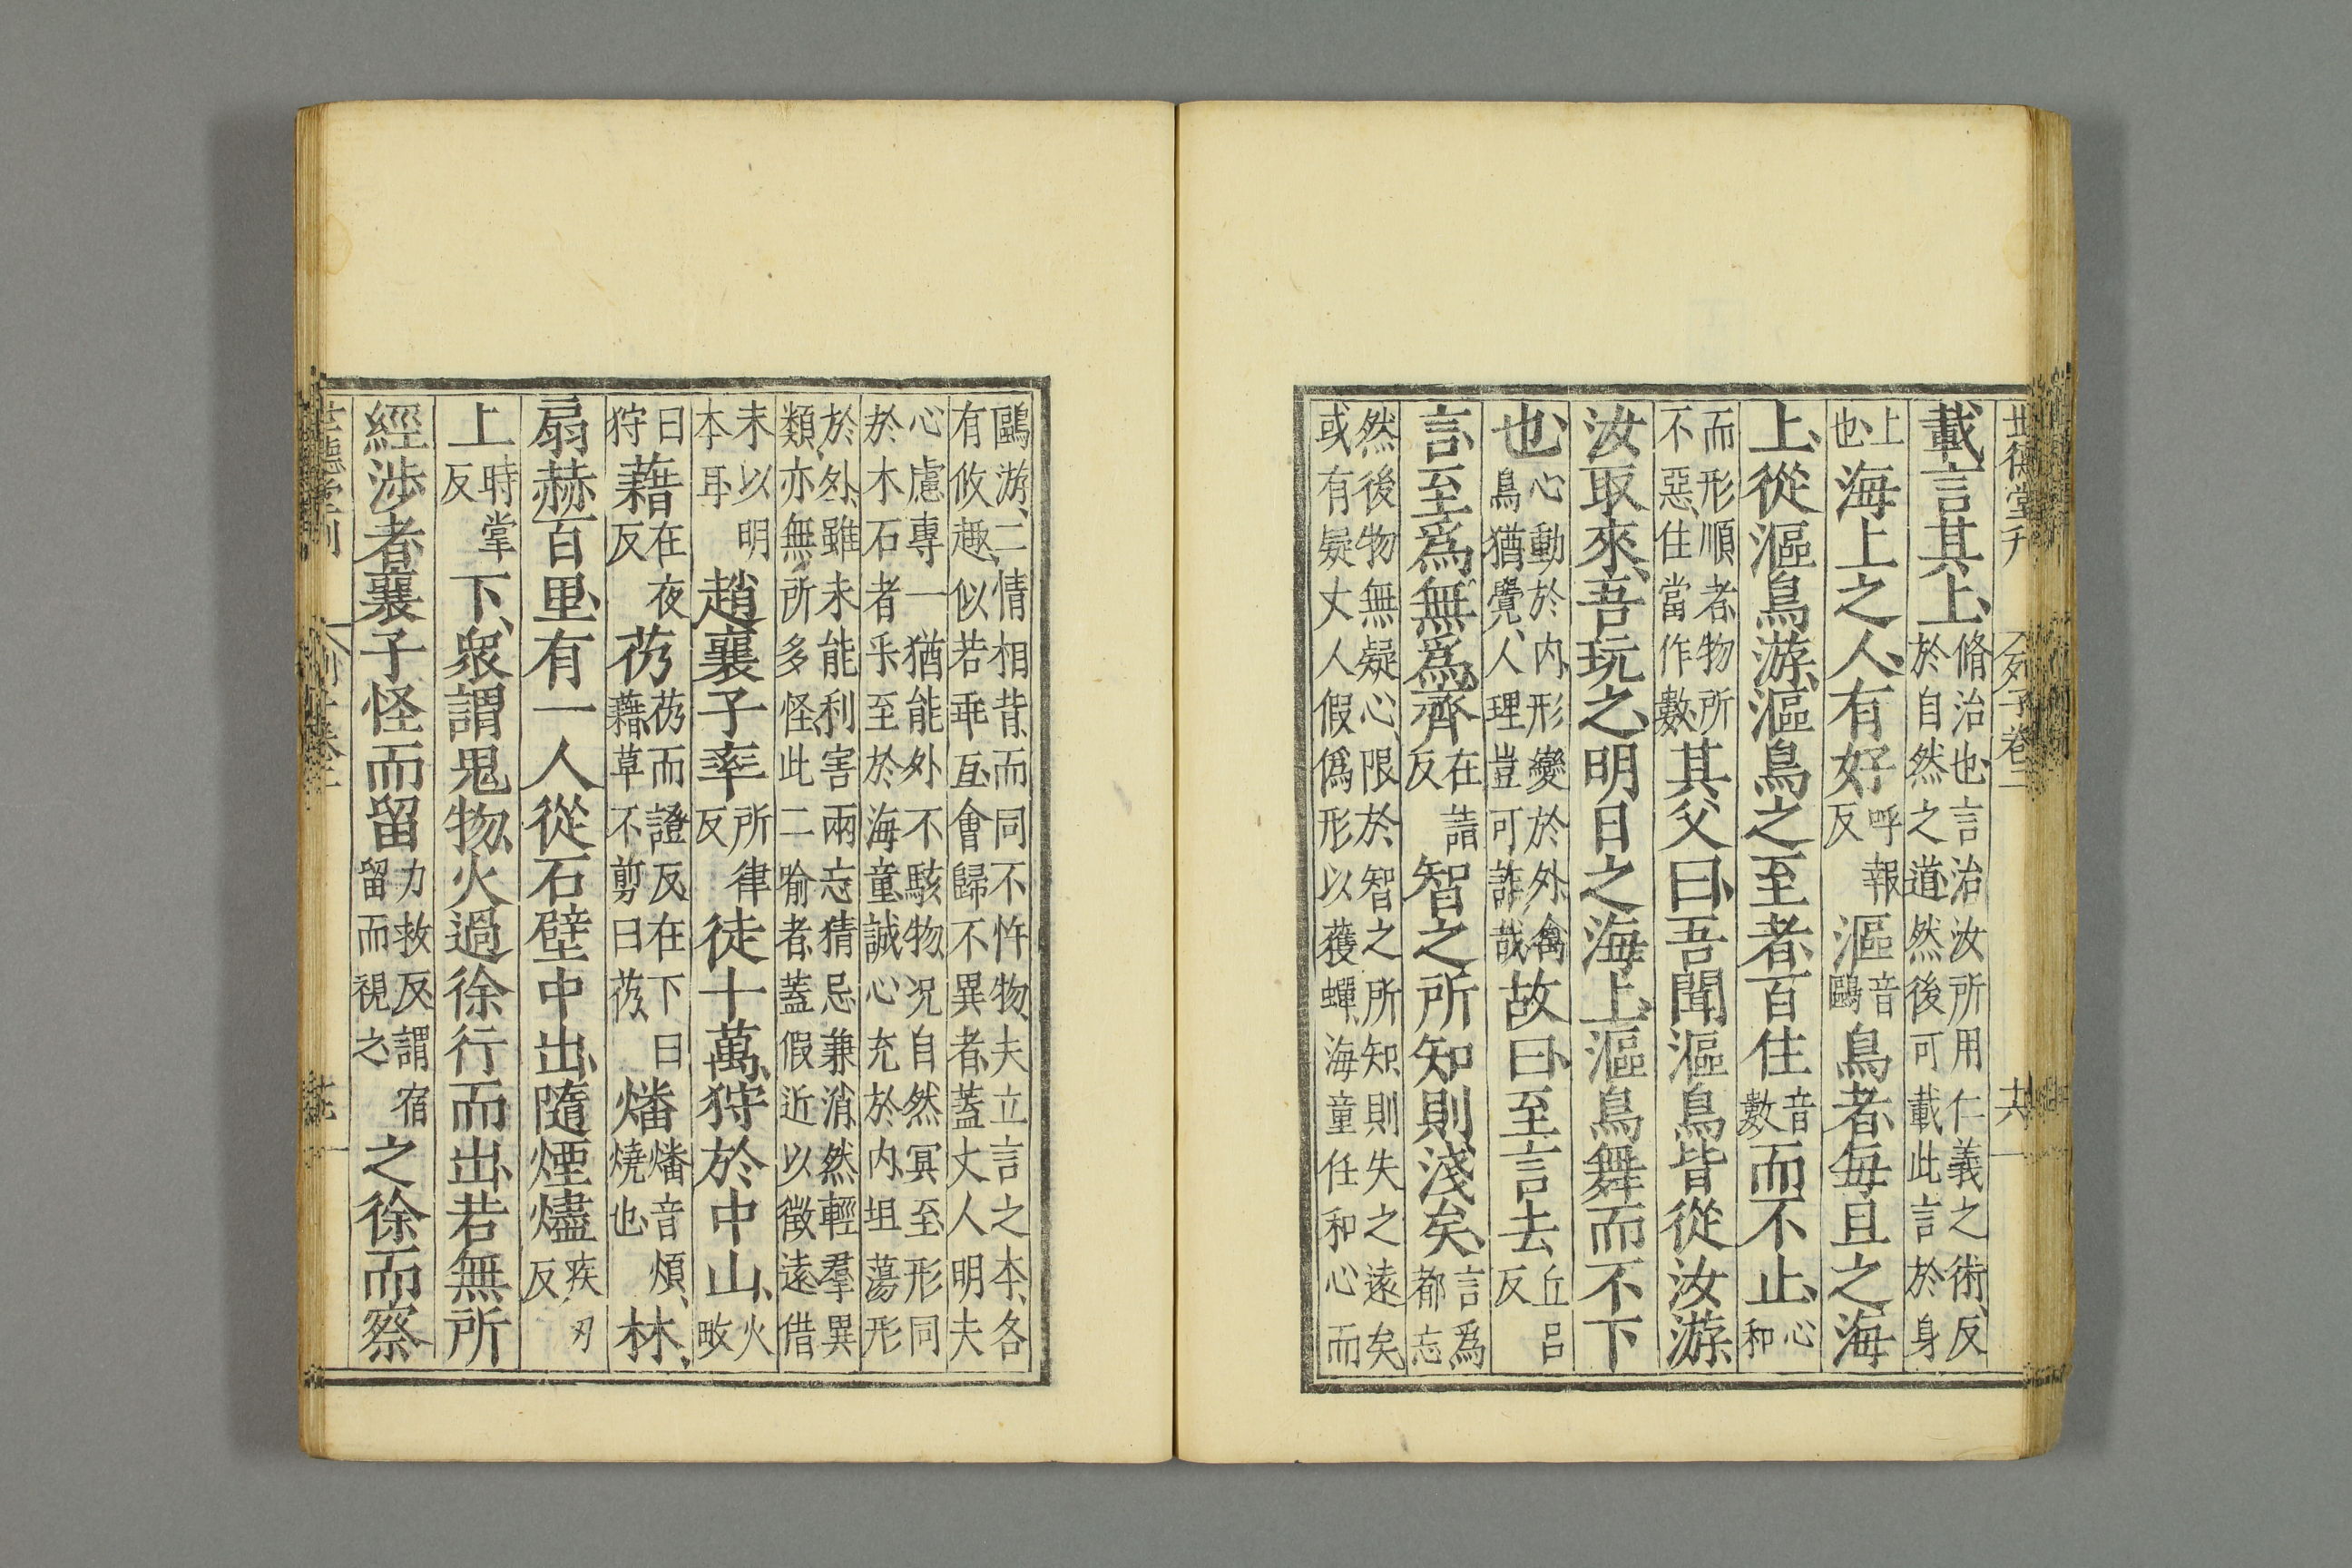 世德堂刊 列子卷二 十六
載言其上、脩治也、言治汝所用仁義之術、反於自然之道、然後可載此言於身
上也、海上之人、有好呼報反漚音鷗鳥者、每旦之海
上、從漚鳥游、漚鳥之至者、百住音數而不止、心和
而形順者、物所不惡、住當作數、其父曰、吾聞漚鳥皆從汝游
汝取來、吾玩之、明日之海上、漚鳥舞而不下
也、心動於内、形變於外、禽鳥猶覺、人理豈可詐哉故曰、至言去丘呂反
言、至爲無爲、齊在詣反智之所知則淺矣、言爲都忘
然後物無疑心、限於智之所知、則失之遠矣、或有疑丈人假僞形以獲蟬、海童任和心而
鷗游、二情相背、而同不忤物、夫立言之本、各有攸趣、似若乖互、會歸不異者、蓋丈人明夫
心慮專一、猶能外不駭物、况自然冥至、形同於木石者乎、至於海童、誠心充於内、坦蕩形
於外、雖未能利害兩忘、猜忌兼消、然輕羣異類、亦無所多怪、此二喻者、蓋假近以徵遠、借
末以明本耳趙襄子率所律反徒十萬、狩於中山、火畋
曰狩藉在夜反芿芿而證反、在下曰藉、草不剪曰芿、燔燔音煩、燒也、林、
扇赫百里、有一人從石壁中出、隨煙燼疾刃反
上時掌反下、衆謂鬼物、火過徐行而出、若無所
經涉者、襄子怪而留力救反、謂宿留而視之、之徐而察